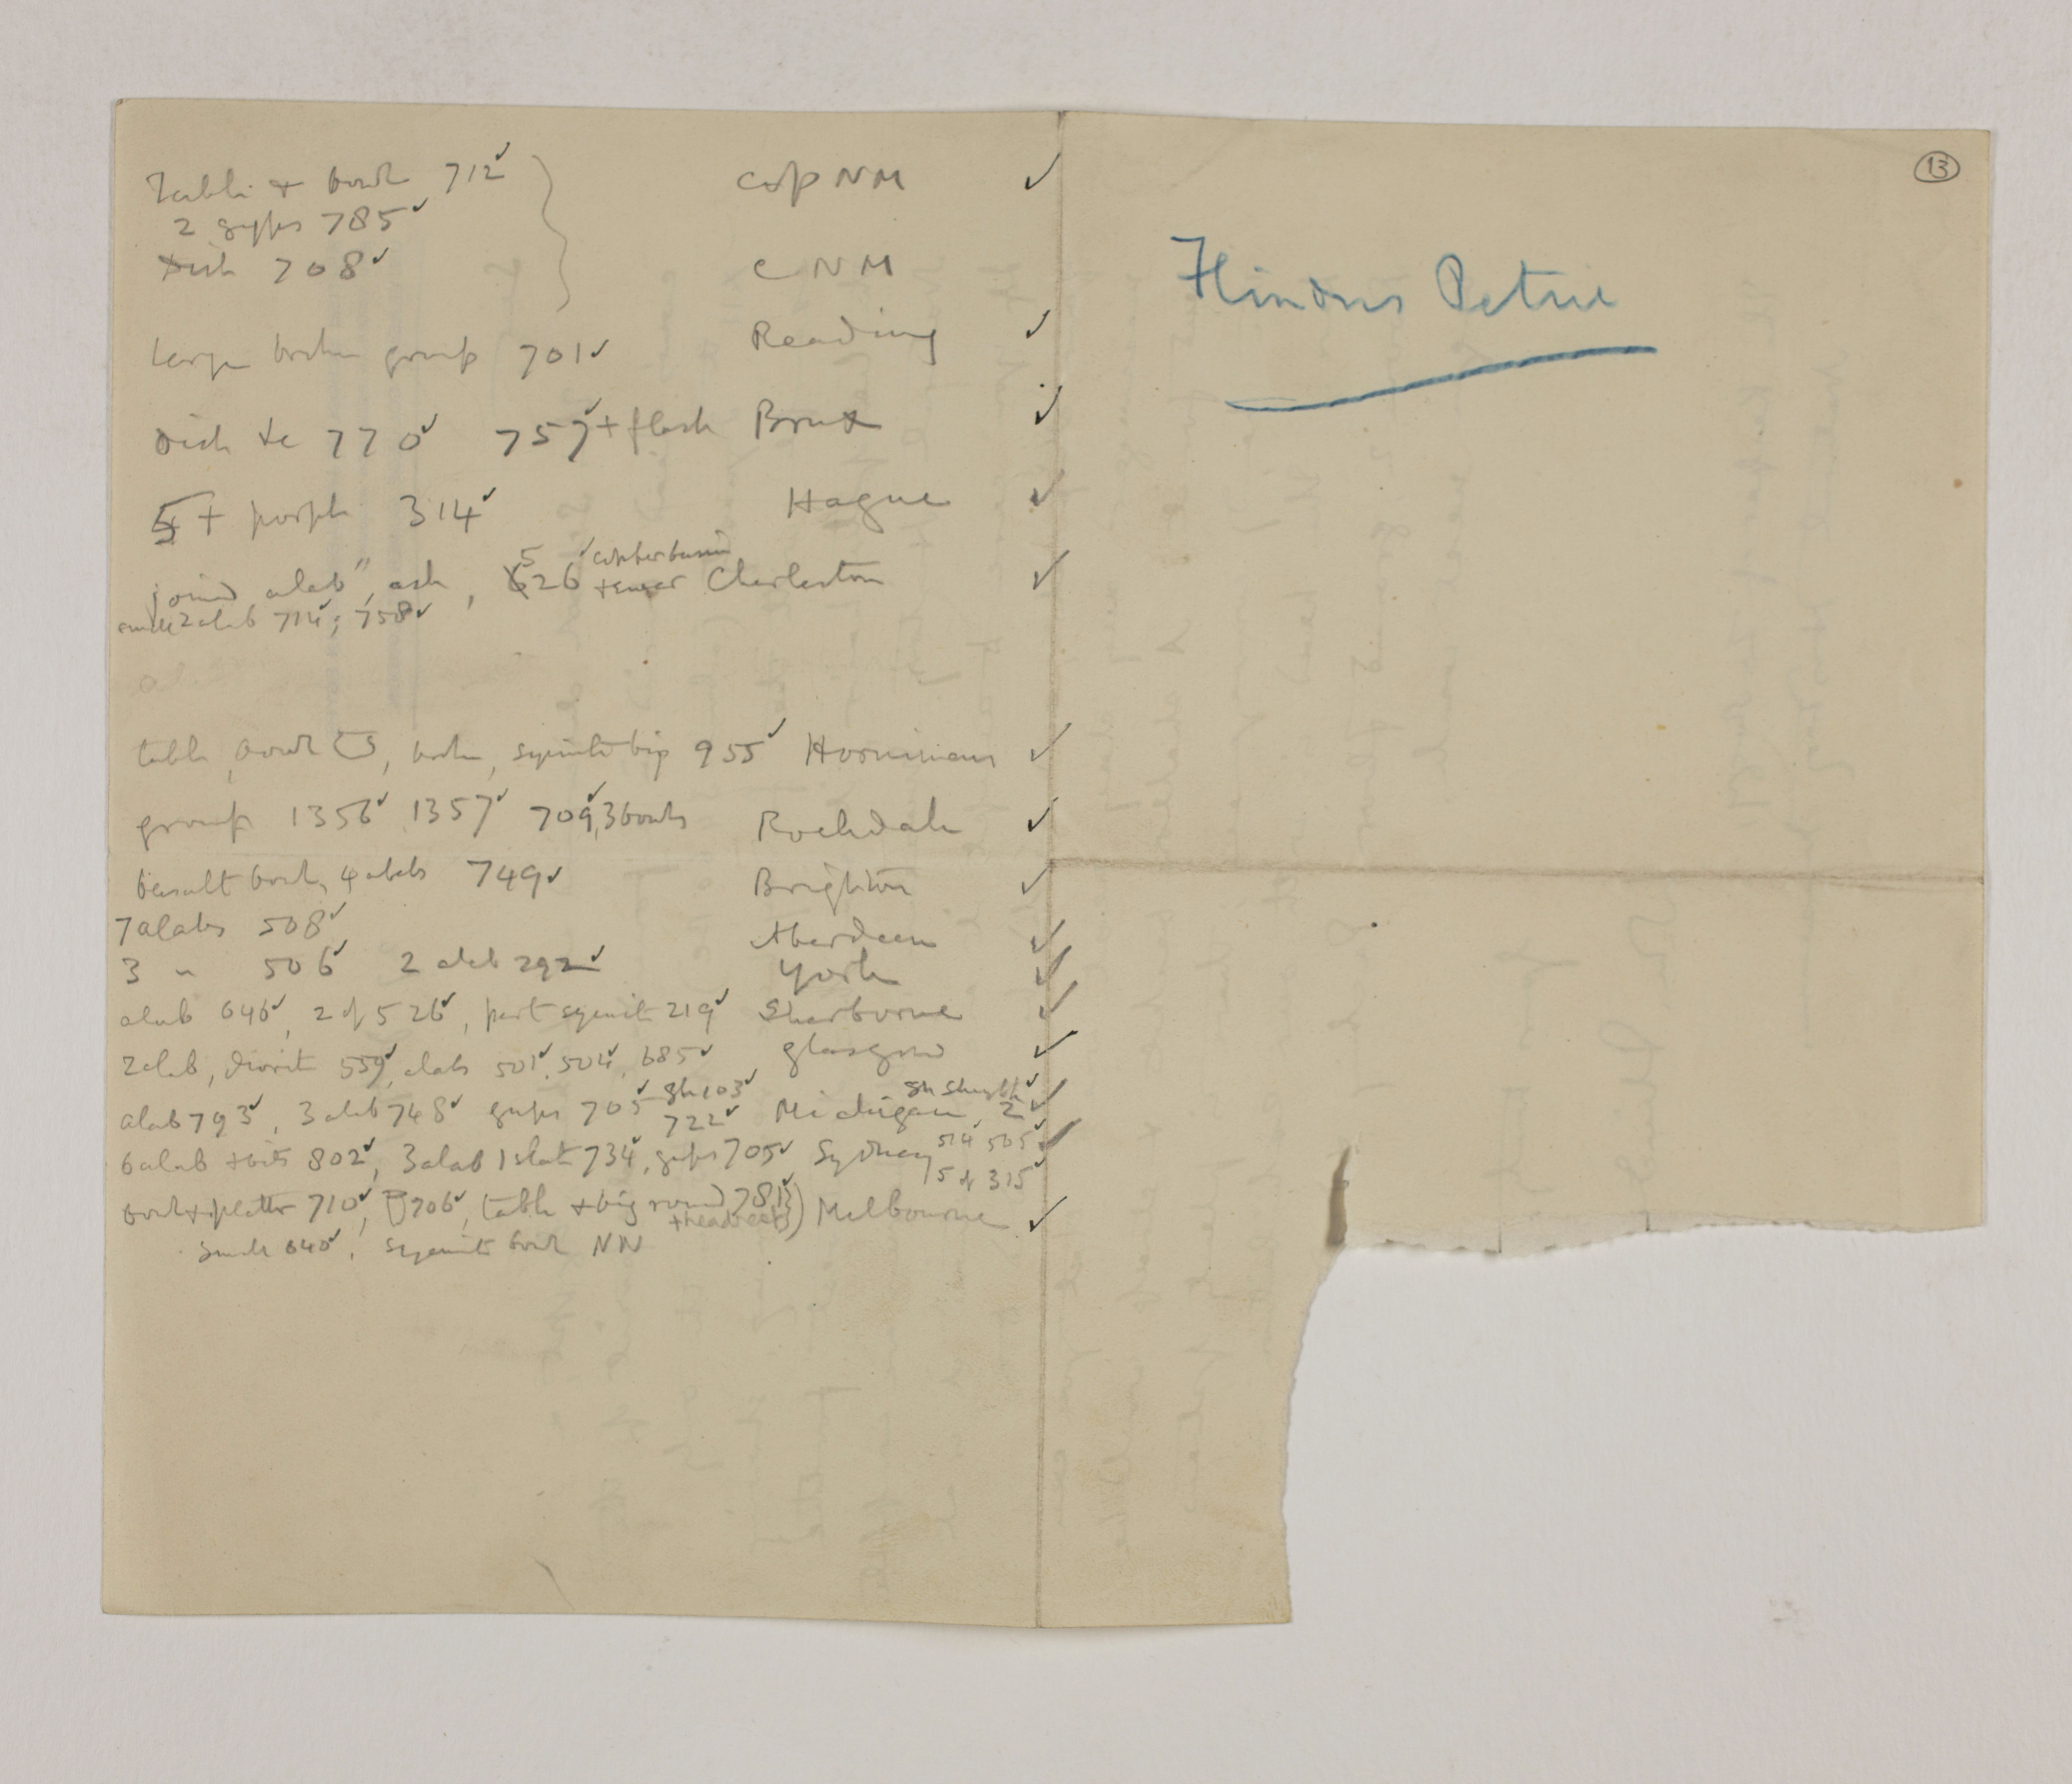 Table + bowl 712 ✓ CopNM ✓
2 gyps 785 ✓
Dish 708 ✓ CNM
large broken group 701 ✓ Reading ✓
dish &c 770 ✓ 757 ✓ + flask Brux ✓
5 + porph 314 ✓ Hague ✓
joined alab, 526 ✓ copper basin + ewer Charleston ✓
2 alab 714 ✓; 758 ✓
table, bowl, broken, syenite big 955 ✓ Hornimans ✓
group 1356 ✓ 1357 ✓ 709 ✓, 3 bowls Rochdale ✓
basalt bowl, 4 alabs 749 ✓ Brighton ✓
7 alabs 508 ✓ Aberdeen ✓
3 " 506 ✓ 2 alab 292 ✓ York ✓
alab 646 ✓, 2 of 526 ✓, part syenite 219 ✓ Sherborne ✓
2 alab, diorite 559 ✓, alab 501 ✓, 504 ✓, 685 ✓ Glasgow ✓
alab 793 ✓, 3 alab 748 ✓ gyps 705 ✓ 103 ✓ 722 ✓ Michigan, 2 ✓
6 alab + bits 802 ✓, 3 alab 1 slate 734 ✓, gyps 705 ✓ Sydney 514 ✓ 505 ✓ 5 of 315 ✓
bowl + platter 710 ✓, 706 ✓, table + big round 781 ✓ + headrest Melbourne ✓
Small 640 ✓, syenite bowl NN
13
Flinders Petrie